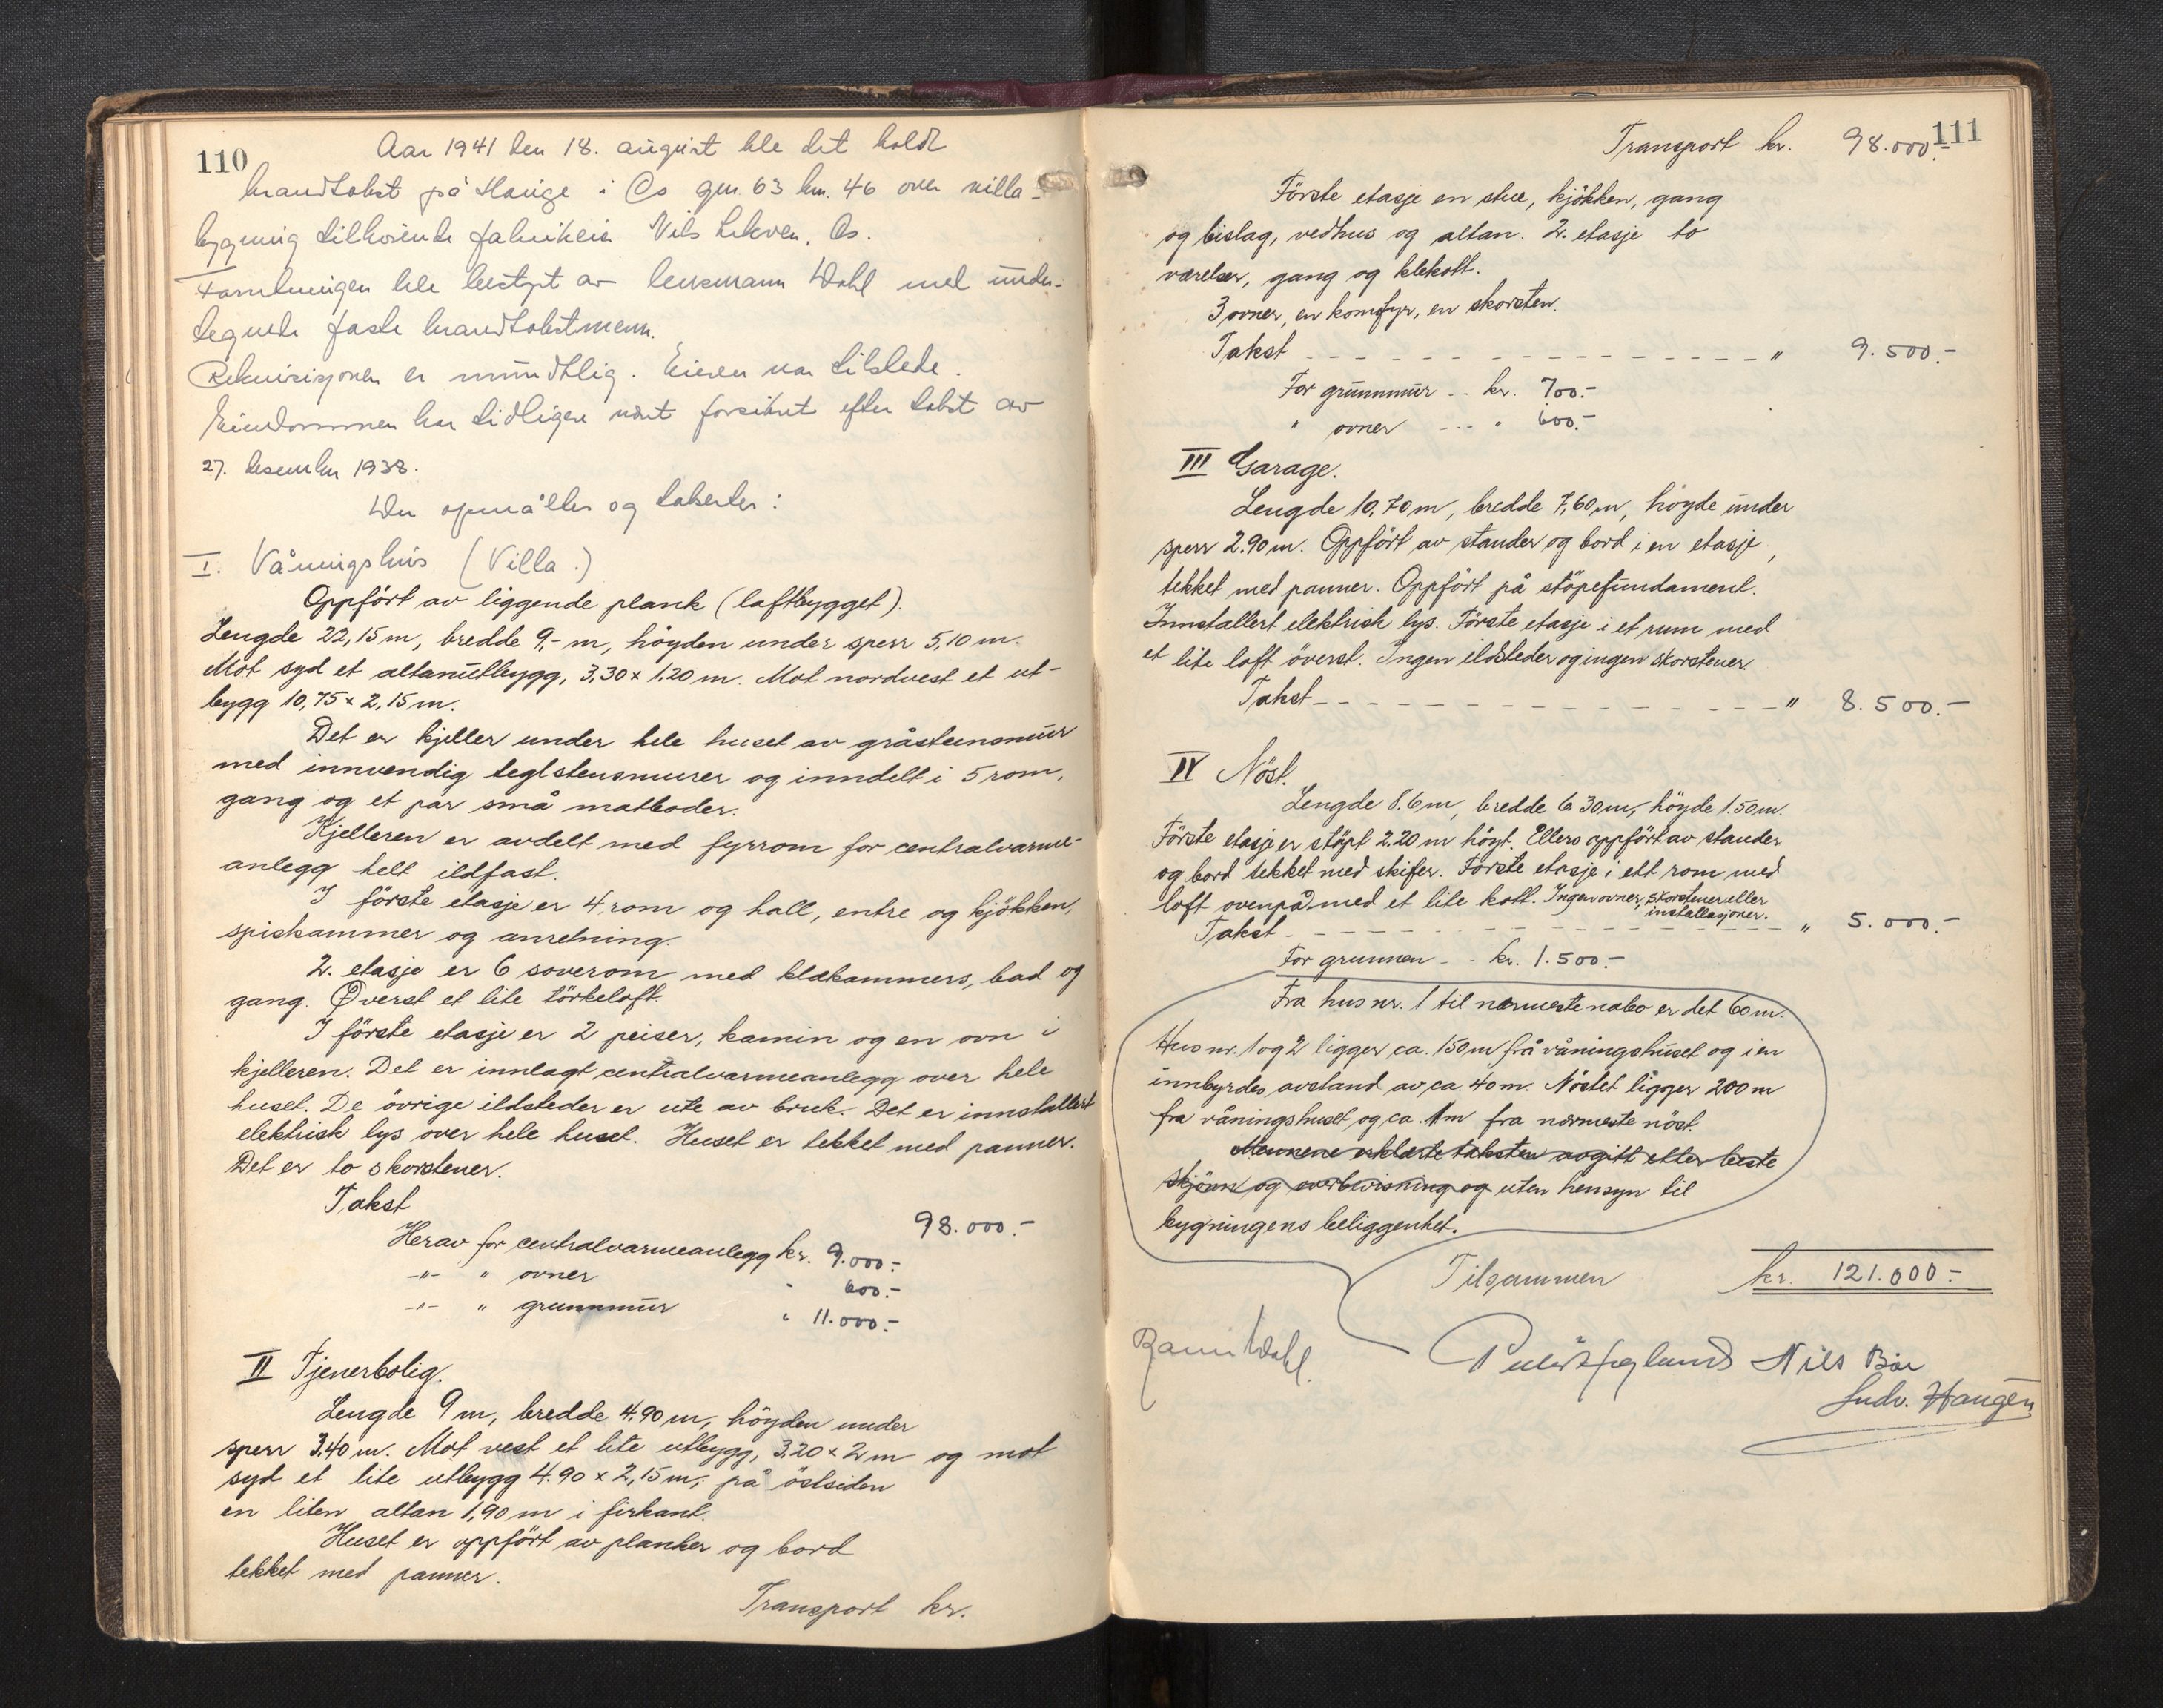 110
Aar 1941 den 18. august ble det holdt
brandtakst på Hauge i Os gnr 63 bnr. 46 over villa-
bygning tilhørende fabrikeier Nils Lekven, Os.
Forretningen ble bestyrt av lensmann Dahl med under-
tegnede faste brandtakstmenn.
Rekvisisjonen er mundtlig. Eieren var tilstede.
Eiendommen har tidligere vært forsikret efter takst av
27. desember 1938.
Der opmåltes og takserter:
I. Våningshus (Villa.)
Oppfört av liggende plank (laftbygget).
Lengde 22,15 m, bredde 9,- m, höyden under sperr 5,10 m.
Mot syd et altanutbygg, 3,30 x 1,20 m. Mot nordvest et ut-
bygg 10,75 x 2,15 m.
Det er kjeller under hele huset av gråsteinsmur
med innvendig teglstensmurer og inndelt i 5 rom,
gang og et par små matboder.
Kjelleren er avdelt med fyrrom for centralvarme-
anlegg helt ildfast.
I förste etasje er 4 rom og hall, entre og kjökken,
spiskammer og anretning.
2. etasje er 6 soverom med klækammers, bad og
gang. Øverst et lite törkeloft.
I förste etasje er 2 peiser, kamin og en ovn i
kjelleren. Det er innlagt centralvarmeanlegg over hele
huset. De övrige ildsteder er ute av bruk. Det er innstallert
elektrisk lys over hele huset. Huset er tekket med panner.
Det er to skorstener.
Takst
98.000.-
Herav for centralvarmeanlegg kr. 9.000.-
-"- " ovner " 600.-
-"- " grunnmur " 11.000.-
II Tjenerbolig.
Lengde 9 m, bredde 4,90 m, höyden under
sperr 3.40 m. Mot vest et lite utbygg, 3.20 x 2 m og mot
syd et lite utbygg 4.90 x 2,15 m, på östsiden
en liten altan 1,90 m i firkant.
Huset er oppfört av planker og bord
tekket med panner.
Transport kr.
111
Transport kr. 98.000.-
Förste etasje en stue, kjökken, gang
og bislag, vedhus og altan. 2. etasje to
værelser, gang og klekott.
3 ovner, en komfyr, en skorsten.
Takst " 9.500.-
For grunnmur .. kr. 700.-
" ovner ... " 600.-
III Garage.
Lengde 10,70 m, bredde 7,60 m, höyde under
sperr 2.90 m. Oppfört av stander og bord i en etasje,
tekket med panner. Oppfört på stöpefundament.
Innstallert elektrisk lys. Förste etasje i et rum med
et lite loft överst. Ingen ildsteder og ingen skorstener.
Takst " 8.500.-
IV Nöst.
Lengde 8.6 m, bredde 6.30 m, höyde 1.50 m.
Förste etasje er stöpt 2.20 m höyt. Ellers oppfört av stander
og bord tekket med skifer. Förste etasje i ett rom med
loft ovenpå med et lite kott. Ingen ovner, skorstener eller
installasjoner.
Takst " 5.000.-
For grunnen .. kr. 1.500.-
Fra hus nr. 1 til nærmeste nabo er det 60 m.
Hus nr. 1 og 2 ligger ca. 150 m frå våningshuset og i en
innbyrdes avstand av ca. 40 m. Nöstet ligger 200 m
fra våningshuset og ca. 1 m fra nærmeste nöst.
Mennene erklærte taksten avgitt etter beste
skjönn og overbevisning og uten hensyn til
bygningens beliggenhet.
Tilsammen kr. 121.000.-
Dahl. Nils Bøe
Ludv. Haugen